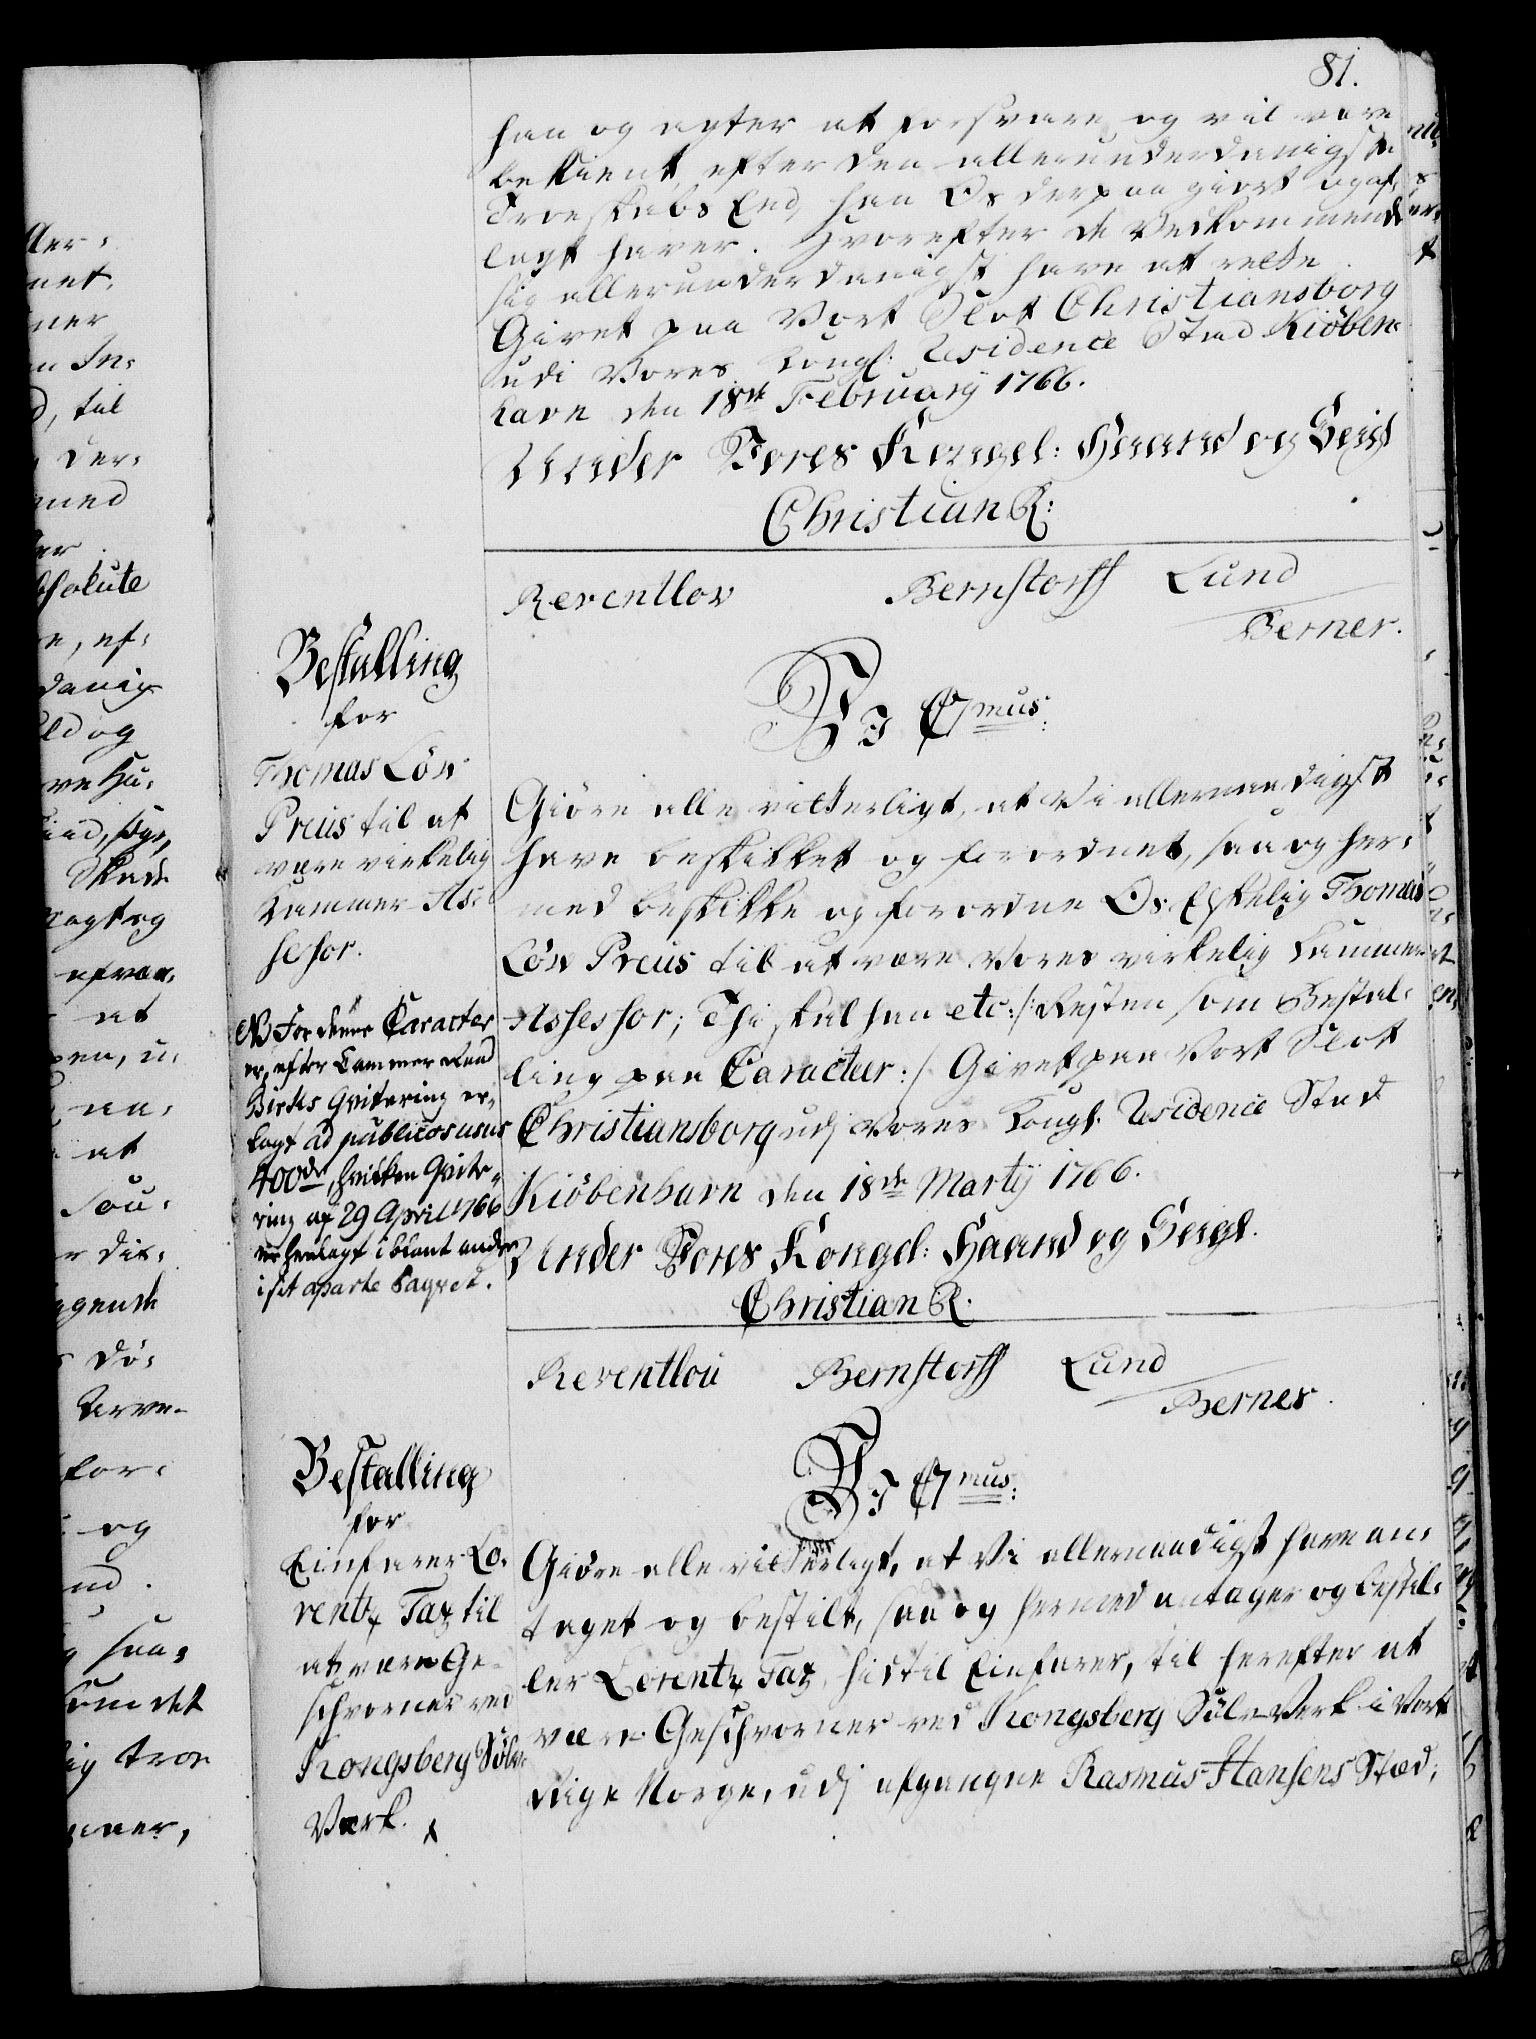 81.
han og agter at forsvare og vil være
bekient, efter den allerunderdanigste
Troeskabs Eed, han Os derpaa giort og af-
lagt haver. Hvorefter de Vedkommende
sig allerunderdanigst have at rette.
Givet paa Vort Slot Christiansborg
udi Vores Kongl. Residence Stad Kiöben-
havn den 18de February 1766.
Under Vores Kongel: Haand og Seigl
Christian R:
Reventlow Bernstorff Lund
Berner.
Bestalling
for
Thomas Löw
Preus til at
være virkelig
Kammer-As-
sessor.
NB For denne Caracter
er, efter Cammer Raad
Birchs Qvitering er-
lagt ad publicos usus
400 dr, hvilken Qvite-
ring af 29 April 1766
er henlagt iblant andre
i sit aparte Paqvet.
Vi C7mus:
Giöre alle vitterligt, at Vi allernaadigst
have beskikket og forordnet, saa og her-
med beskikke og forordne Os Elskelig Thomas
Löw Preus til at være Vores virkelig Kammer
Assessor; Thi skal han etc: /: Resten som Bestal-
ling paa Caracteer: / Givet paa Vort Slot
Christiansborg udj Vores Kongl. Residence Stad
Kiöbenhavn den 18de Martij 1766.
Under Vores Kongel: Haand og Seigl.
Christian R.
Reventlou Bernstorff Lund
Berner.
Bestalling
for
Einfarer Lo-
rentz Tax til
at være Ge-
schvorner ved
Kongsberg Sölv-
Værk.
Vi C7mus:
Giöre alle vitterligt, at Vi allernaadigst have an-
taget og bestilt, saa og hermed antager og bestil-
ler Lorentz Tax, hidtil Einfarer, til herefter at
være Geschvorner ved Kongsberg Sölv-Verk i Vort
Rige Norge, udj afgangne Rasmus Hansens Stæd,